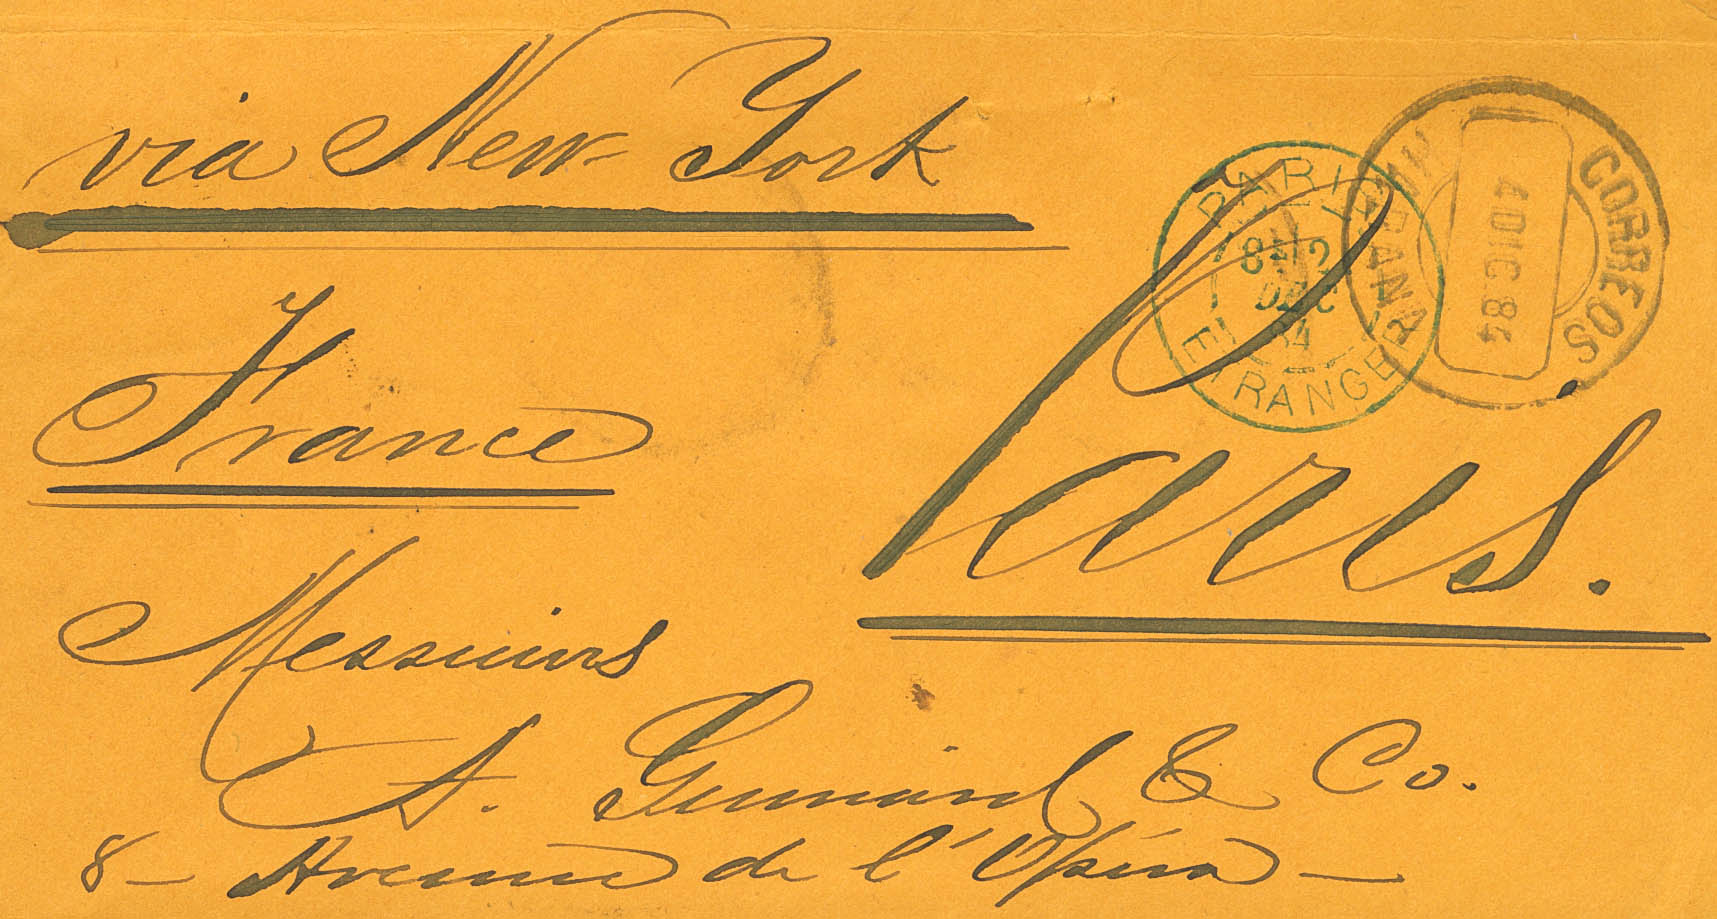 via New-York
PARIS
8E 2
DEC
84
ETRANGER
CORREOS
4 DIC. 84
France
Paris.
Messieurs
A. & Co.
8 - Avenue de l'Opéra -